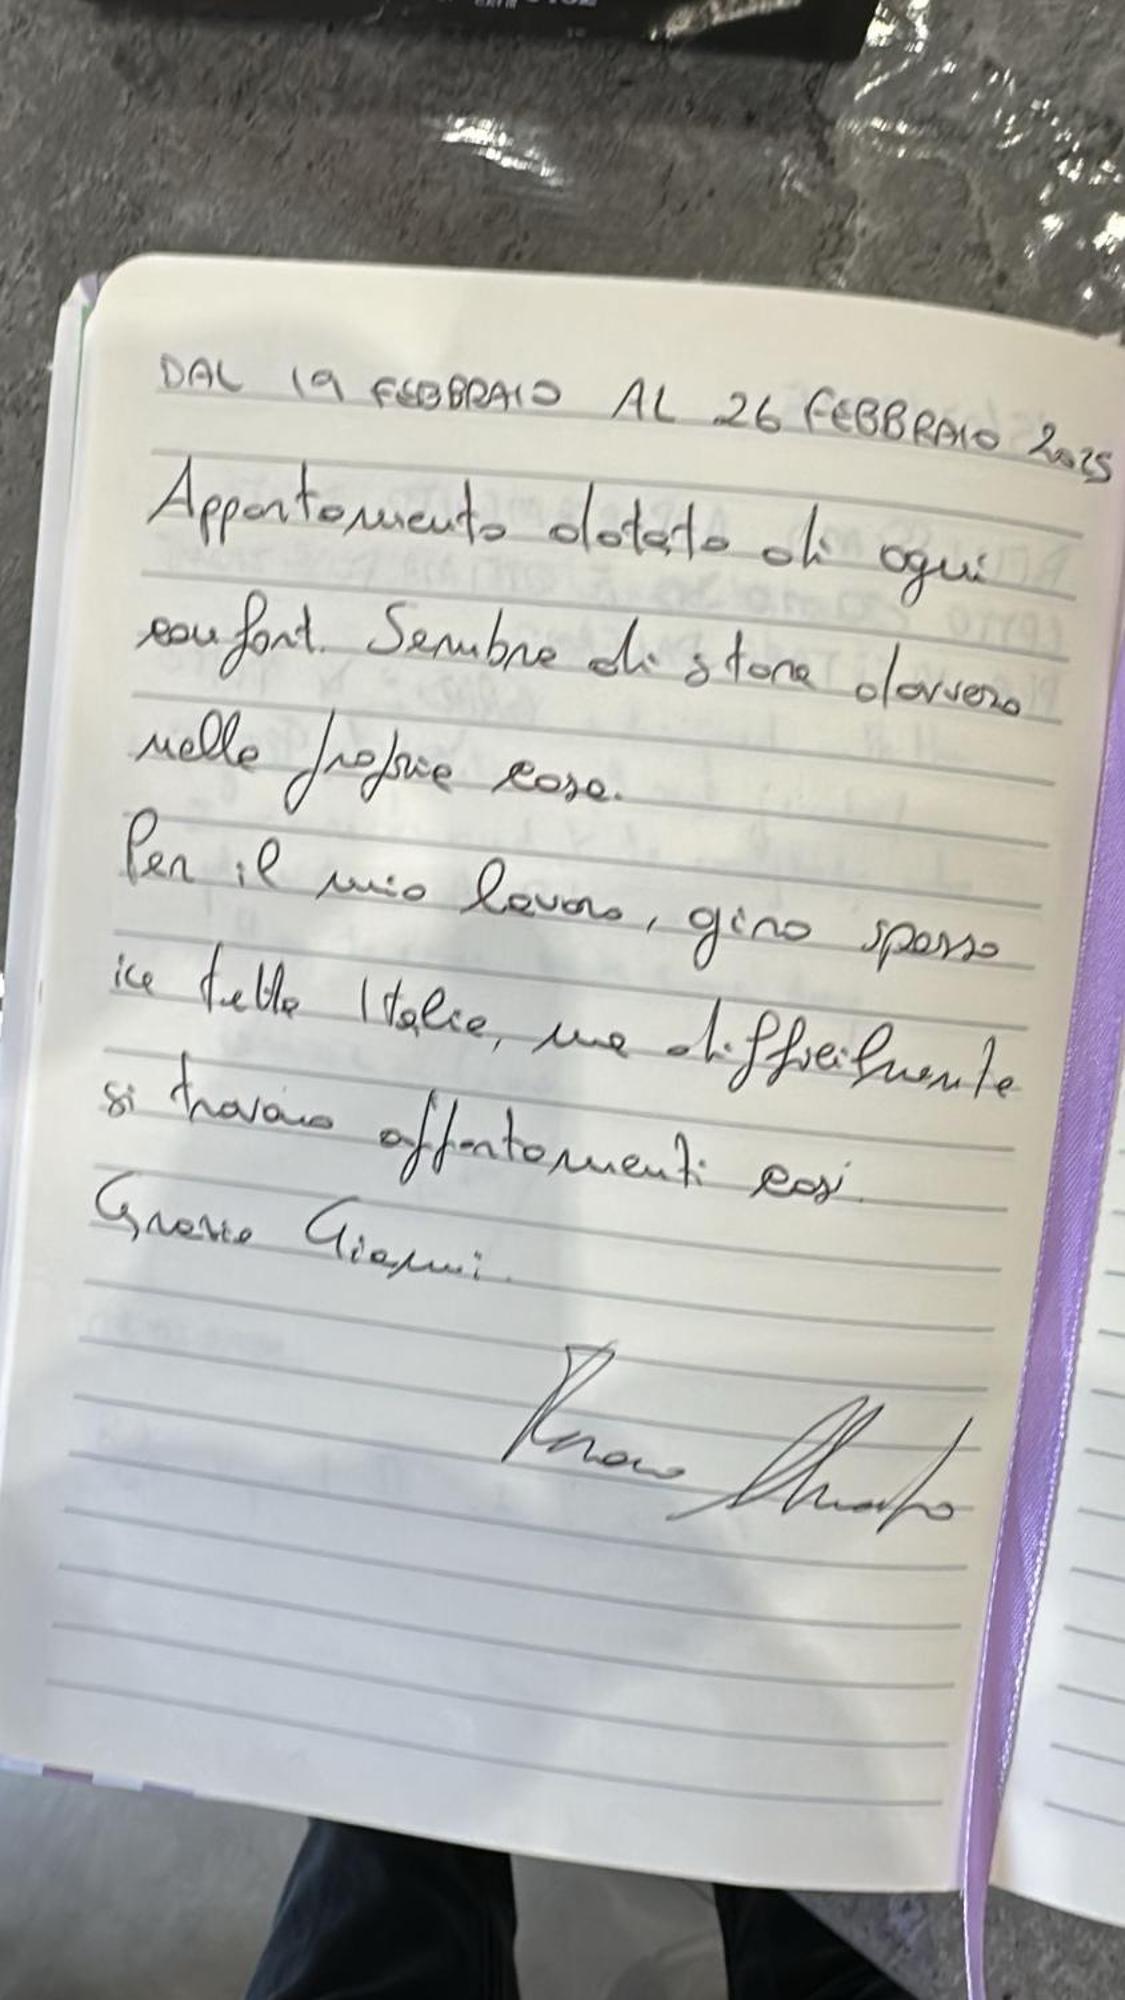 DAL 19 FEBBRAIO AL 26 FEBBRAIO 2025
Appartamento dotato di ogni
confort. Sembra di stare davvero
nella propria casa.
Per il mio lavoro, giro spesso
in tutta Italia, ma difficilmente
si trovano appartamenti così.
Grazie Gianni.